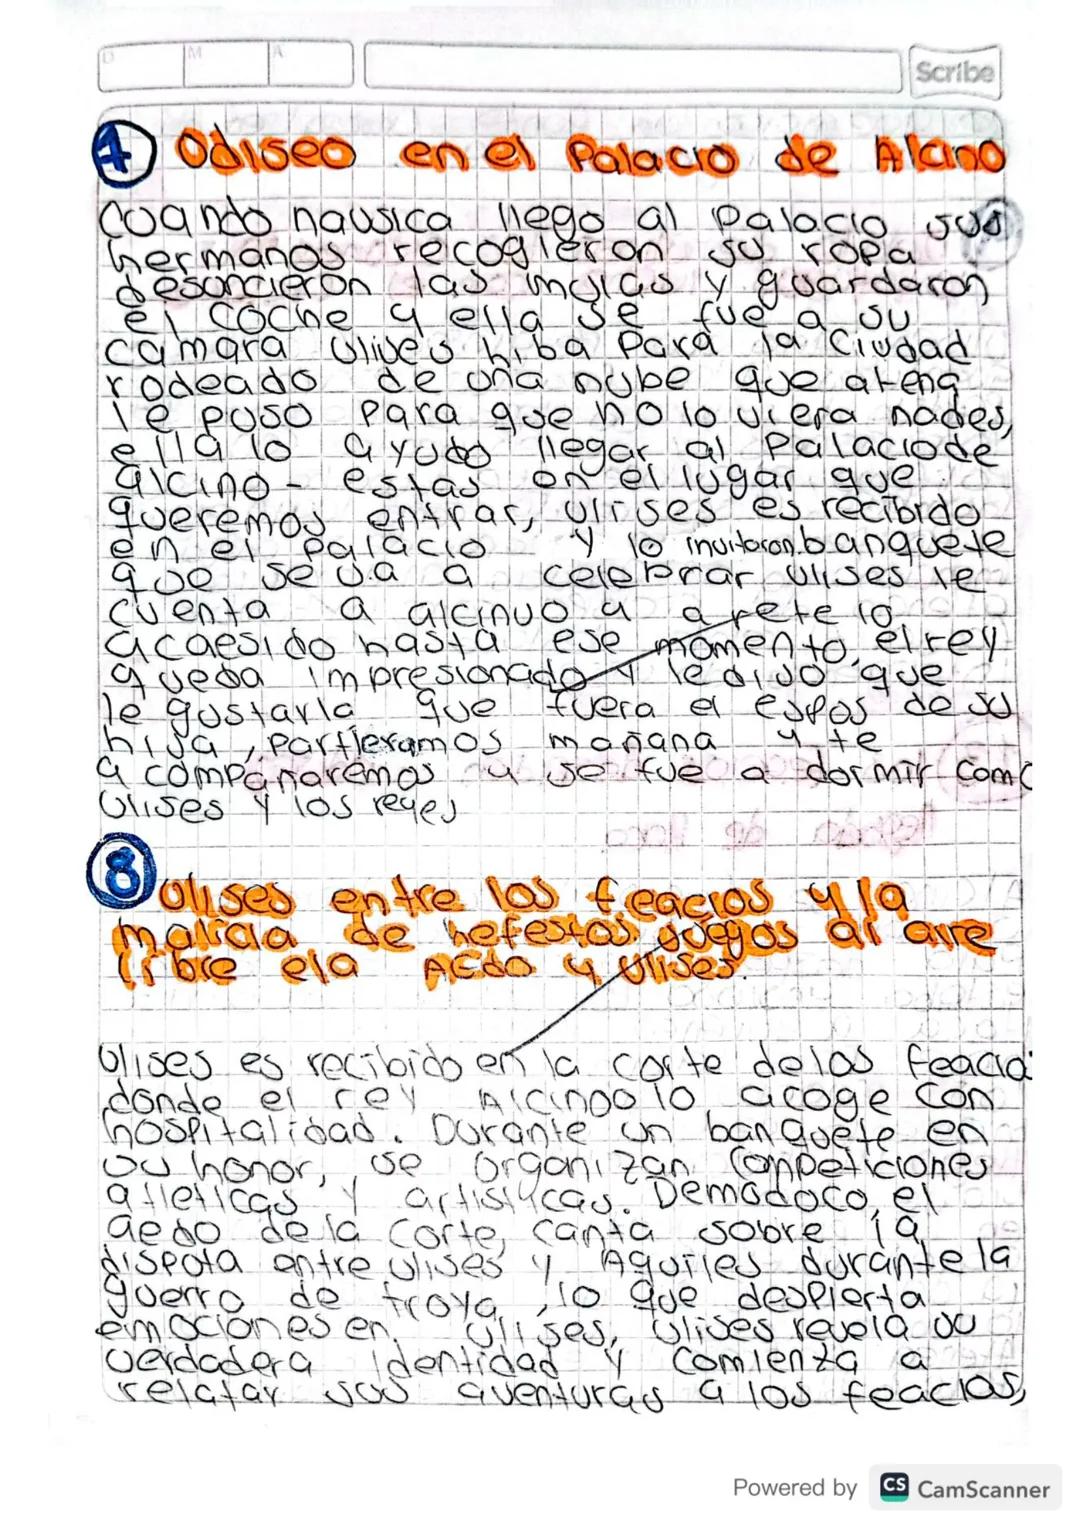 D M A Scribe
7 Odiseo en el Palacio de Alcino
Cuando nausica llego al Palacio sus
hermanos recogieron su ropa
desuncieron las mulas y guardaron
el coche y ella se fue a su
camara Ulises hiba Para la Ciudad
rodeado de una nube que atena
le puso Para que no lo viera nades,
ella lo ayudo llegar al Palaciode
alcino - estas en el lugar que
queremos entrar, ulises es recibido
en el palacio y lo invitaron banquete
que se va a celebrar ulises le
cuenta a alcinuo y arete lo
acaesido hasta ese momento, el rey
queda impresionado y le dijo que
le gustaria que fuera el espos de su
hija, Partieramos mañana y te
acompañaremos y se fue a dormir Como
Ulises y los reyes
8 Ulises entre los feacios y la
de hefestos juegos al aire
libre ela Acdo y Ulises.
Ulises es recibido en la corte delos feacio
donde el rey Alcinoo lo acoge con
hospitalidad. Durante un banquete en
su honor, se organizan Competiciones
atleticas y artisticas. Demodoco, el
aedo de la corte, canta sobre la
disputa entre ulises y Aquiles durante la
guerra de troya, lo que despierta
emociones en ulises, Ulises revela su
verdadera identidad y comienza a
relatar sus aventuras a los feacios,
Powered by CS CamScanner